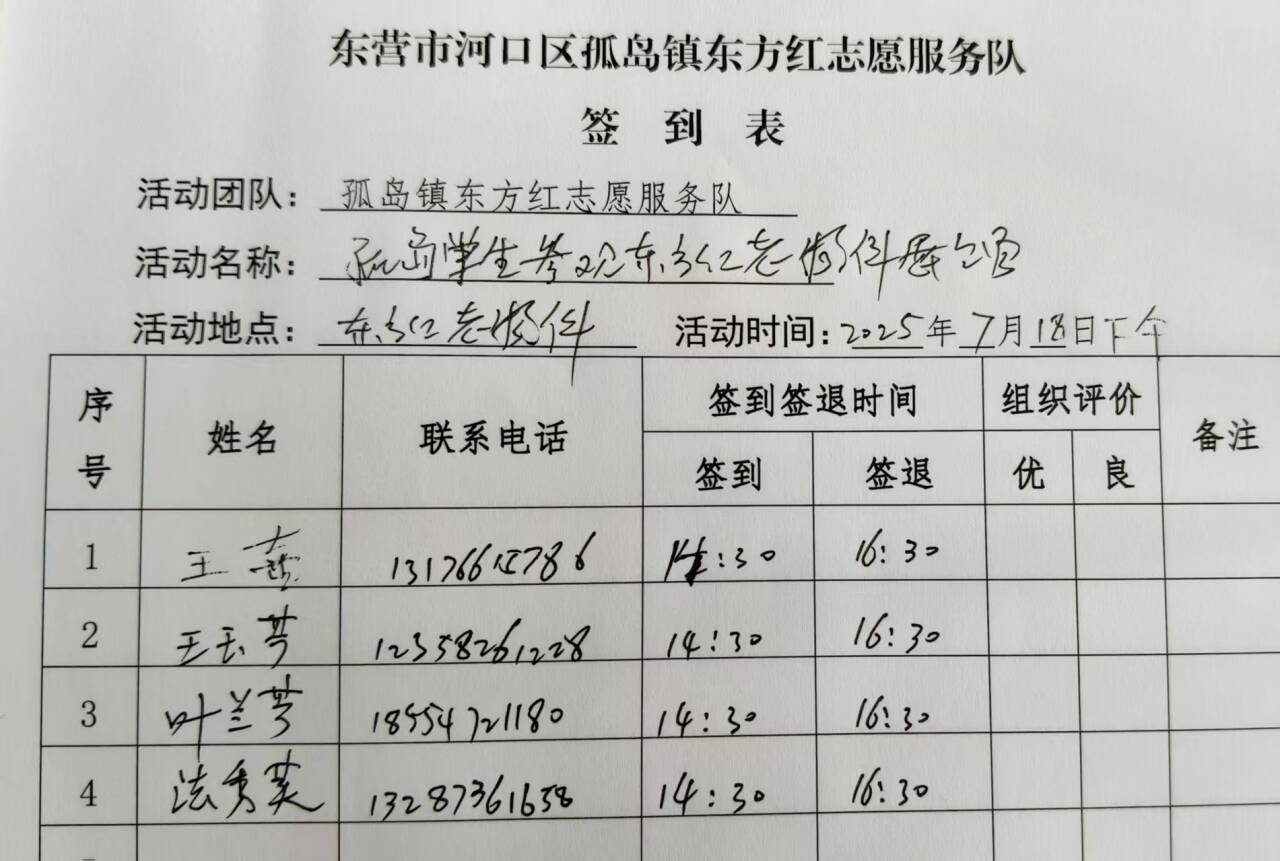 东营市河口区孤岛镇东方红志愿服务队
签 到 表
活动团队：孤岛镇东方红志愿服务队
活动名称：孤岛学生参观东方红老物件展馆
活动地点：东方红老物件 活动时间：2025年7月18日下午
序号 姓名 联系电话 签到签退时间 组织评价 备注
签到 签退 优 良
1 王 13176615786 14:30 16:30
2 王玉芹 12358261228 14:30 16:30
3 叶兰芹 18554721180 14:30 16:30
4 法秀英 13287361658 14:30 16:30